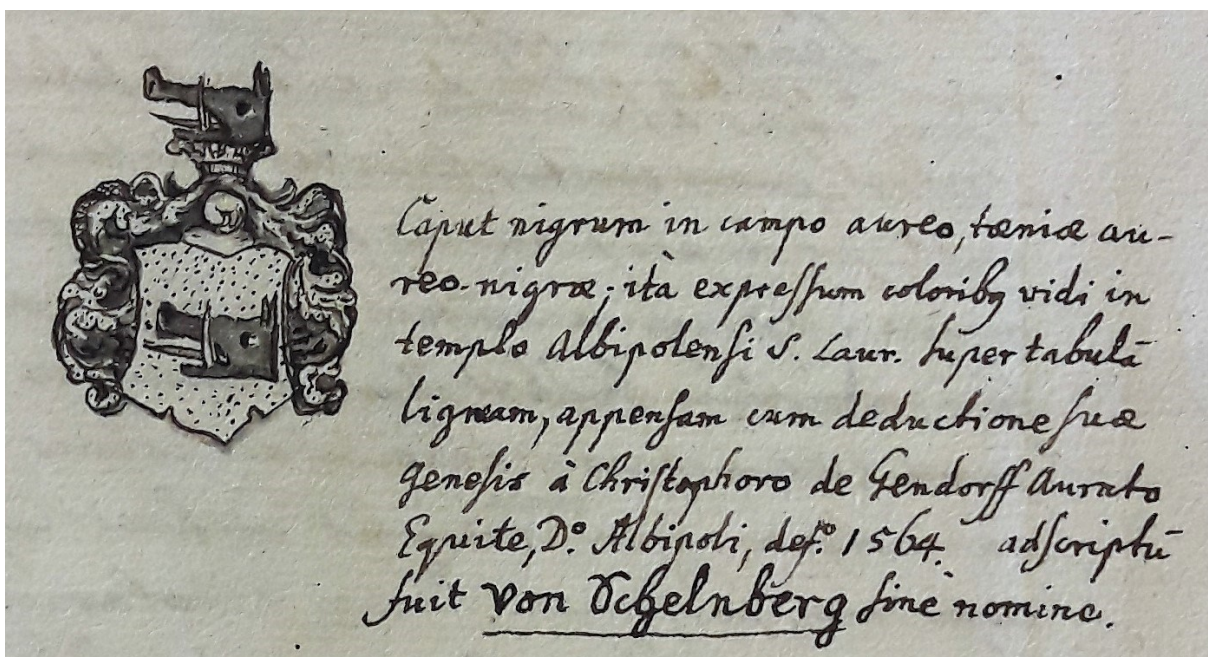 Caput nigrum in campo aureo, tæniæ au-
reo-nigræ; ità expressum coloribꝫ vidi in
templo Albipolensi S. Laur. super tabulā
ligneam, appensam cum deductione suæ
genesis à Christophoro de Gendorff Aurato
Equite, D.º Albipoli, def.º 1564. adscriptū
fuit von Schelnberg sine nomine.